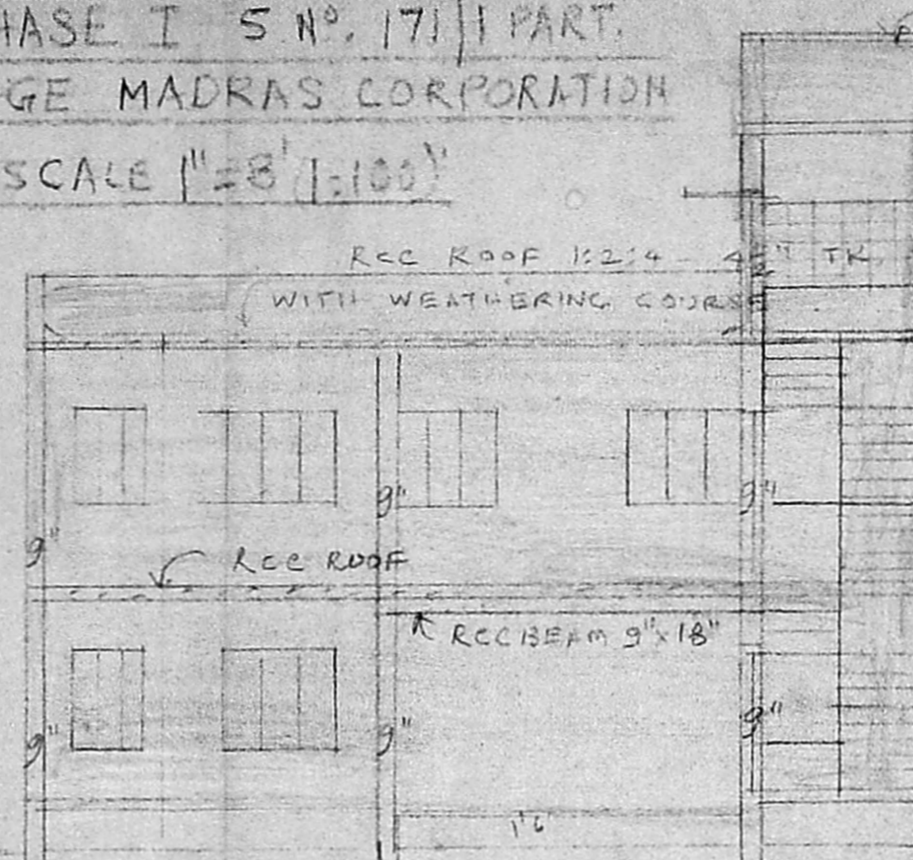 HASE I 5 Nº. 171/1 PART.
GE MADRAS CORPORATION
SCALE 1"=8' (1:100)"
RCC ROOF 1:2:4 - 4½" TK.
WITH WEATHERING COURSE
9" 9"
9"
RCC ROOF
RCC BEAM 9"x18"
9" 9" 9"
1'6